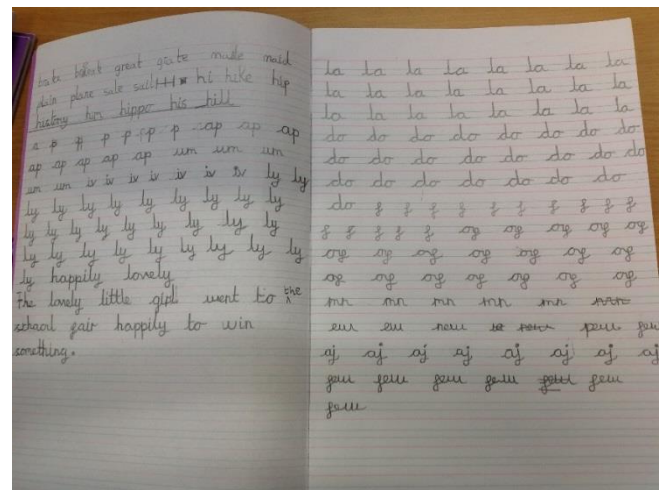 great grate made maid
plain plane sale sail hi hike hip
history him hippo his hill
p p p p p ap ap ap
ap ap ap ap ap um um um
um um iv iv iv iv iv iv ly ly
ly ly ly ly ly ly ly ly
ly ly ly ly ly ly ly ly
ly ly ly ly ly ly ly ly ly
ly happily lovely
The lovely little girl went to the
school fair happily to win
something.
la la la la la la la la
la la la la la la la la
la la la la la la la la
do do do do do do do do
do do do do do do do do
do do do do do do do
do g g g g g g g g g
g g g g g og og og og og
og og og og og og og
og og og og og og og
mn mn mn mn mn mn
ew ew new pew few
aj aj aj aj aj aj aj aj
few few few few few few
few